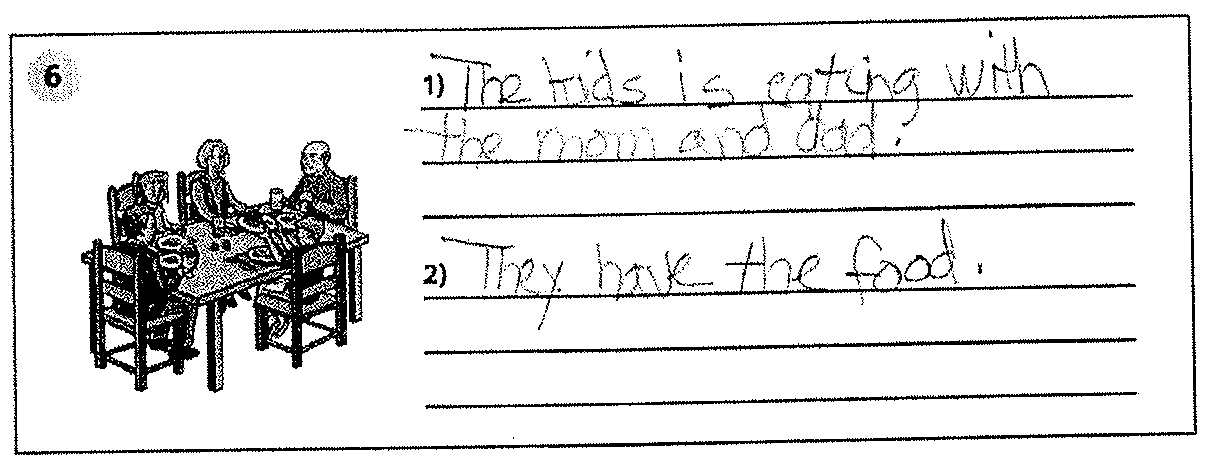 6
1) The kids is eating with
the mom and dad.
2) They have the food.